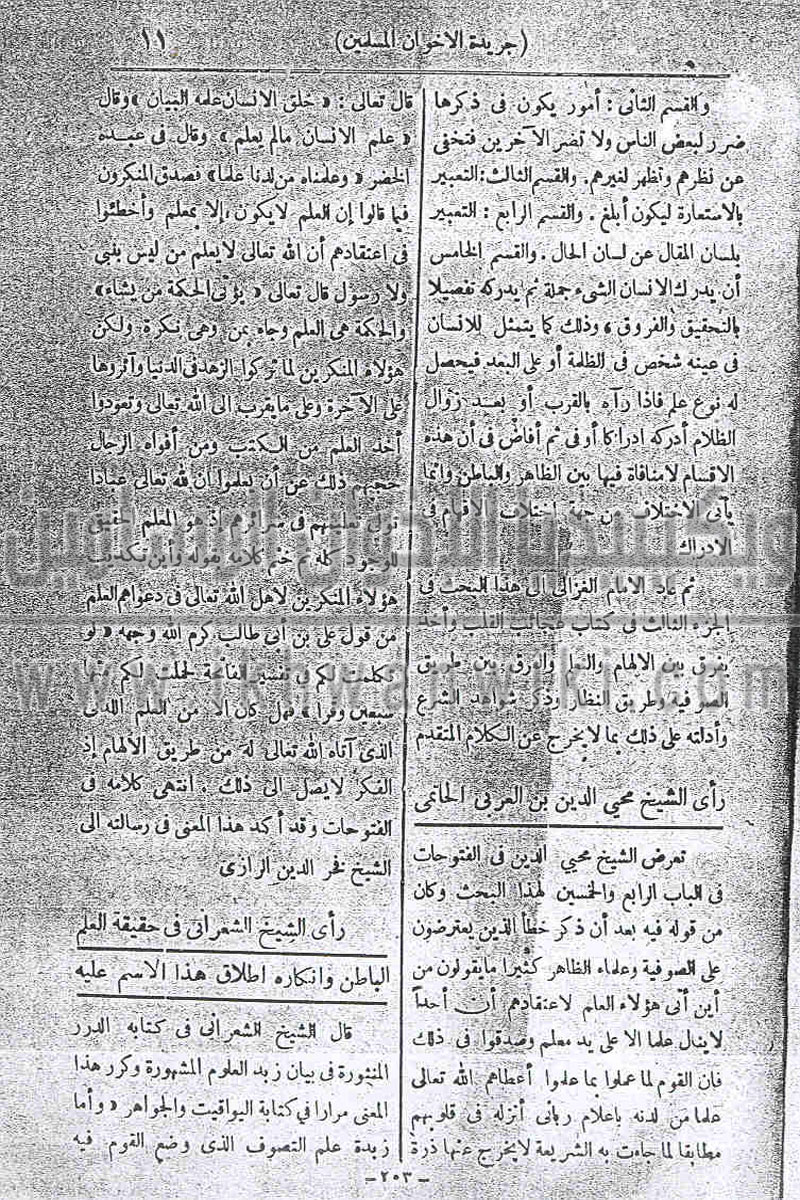 (جريدة الاخوان المسلمين)
١١
والقسم الثانى : أمور يكون فى ذكرها
ضرر لبعض الناس ولا تضر الآخرين فتخفى
عن نظرهم وتظهر لغيرهم . والقسم الثالث : التعبير
بالاستعارة ليكون أبلغ . والقسم الرابع : التعبير
بلسان المقال عن لسان الحال . والقسم الخامس
أن يدرك الانسان الشىء جملة ثم يدركه تفصيلا
بالتحقيق والفروق ، وذلك كما يتمثل للانسان
فى عينه شخص فى الظلمة أو على البعد فيحصل
له نوع علم فاذا رآه بالقرب أو بعد زوال
الظلام أدركه ادراكا أوفى ثم أفاض فى أن هذه
الاقسام لا منافاة فيها بين الظاهر والباطن وانما
يأتى الاختلاف من جهة اختلاف الاقسام فى
الادراك
ثم عاد الامام الغزالى الى هذا البحث فى
الجزء الثالث فى كتاب عجائب القلب وأخذ
يفرق بين الالهام والتعلم والفرق بين طريق
الصوفية وطريق النظار وذكر شواهد الشرع
وأدلته على ذلك بما لا يخرج عن الكلام المتقدم
رأى الشيخ محيى الدين بن العربى الحاتمى
تعرض الشيخ محيى الدين فى الفتوحات
فى الباب الرابع والخمسين لهذا البحث وكان
من قوله فيه بعد أن ذكر خطأ الذين يعترضون
على الصوفية وعلماء الظاهر كثيرا ما يقولون من
أين أتى هؤلاء العلم لاعتقادهم أن أحداً
لاينال علما الا على يد معلم وصدقوا فى ذلك
فان القوم لما عملوا بما علموا أعطاهم الله تعالى
علما من لدنه باعلام ربانى أنزله فى قلوبهم
مطابقا لما جاءت به الشريعة لايخرج عنها ذرة
قال تعالى : « خلق الانسان علمه البيان » وقال
« علم الانسان مالم يعلم » وقال فى عبده
الخضر « وعلمناه من لدنا علما » فصدق المنكرون
فيما قالوا إن العلم لايكون ، إلا بمعلم وأخطئوا
فى اعتقادهم أن الله تعالى لايعلم من ليس بنبى
ولا رسول قال تعالى « يؤتى الحكمة من يشاء »
والحكمة هى العلم وجاء بمن وهى نكرة ولكن
هؤلاء المنكرين لما تركوا الزهد فى الدنيا وآثروها
على الآخرة وعلى مايقرب الى الله تعالى وتعودوا
أخذ العلم من الكتب ومن أفواه الرجال
حجبهم ذلك عن أن يعلموا ان لله تعالى عبادا
تولى تعليمهم فى سرائرهم إذ هو المعلم الحقيقى
للوجود كله ثم ختم كلامه بقوله وأين تكذيب
هؤلاء المنكرين لاهل الله تعالى فى دعواهم العلم
من قول على بن أبى طالب كرم الله وجهه « لو
تكلمت لكم فى تفسير الفاتحة لحملت لكم منها
سبعين وقرا » فهل كان الا من العلم اللدنى
الذى آتاه الله تعالى له من طريق الالهام إذ
الفكر لايصل الى ذلك . انتهى كلامه فى
الفتوحات وقد أكد هذا المعنى فى رسالته الى
الشيخ فخر الدين الرازى
رأى الشيخ الشعرانى فى حقيقة العلم
الباطن وانكاره اطلاق هذا الاسم عليه
قال الشيخ الشعرانى فى كتابه الدرر
المنثورة فى بيان زبد العلوم المشهورة وكرر هذا
المعنى مرارا فى كتابة اليواقيت والجواهر « وأما
زبدة علم التصوف الذى وضع القوم فيه
- ٢٠٣ -
ويكيبيديا الاخوان المسلمين
www.ikhwanwiki.com